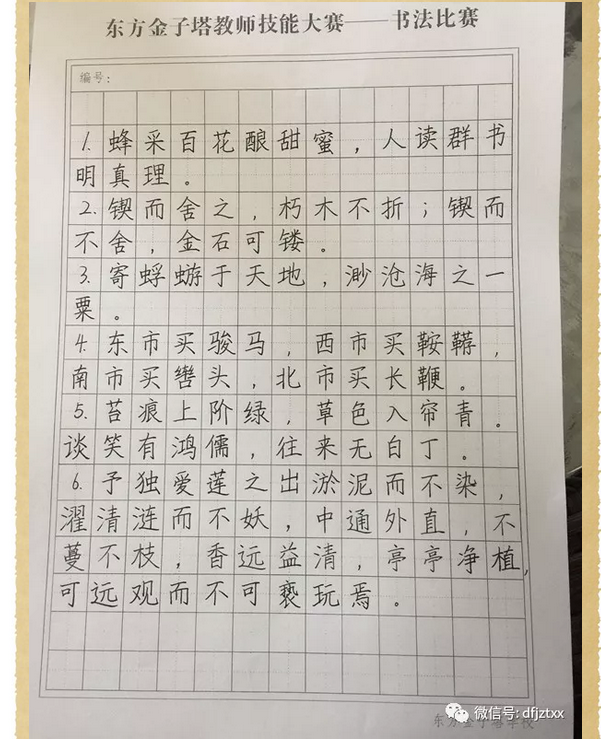 东方金子塔教师技能大赛——书法比赛
编号：
1. 蜂采百花酿甜蜜，人读群书
明真理。
2. 锲而舍之，朽木不折；锲而
不舍，金石可镂。
3. 寄蜉蝣于天地，渺沧海之一
粟。
4. 东市买骏马，西市买鞍鞯，
南市买辔头，北市买长鞭。
5. 苔痕上阶绿，草色入帘青。
谈笑有鸿儒，往来无白丁。
6. 予独爱莲之出淤泥而不染，
濯清涟而不妖，中通外直，不
蔓不枝，香远益清，亭亭净植，
可远观而不可亵玩焉。
微信号: dfjztxx
东方金子塔学校